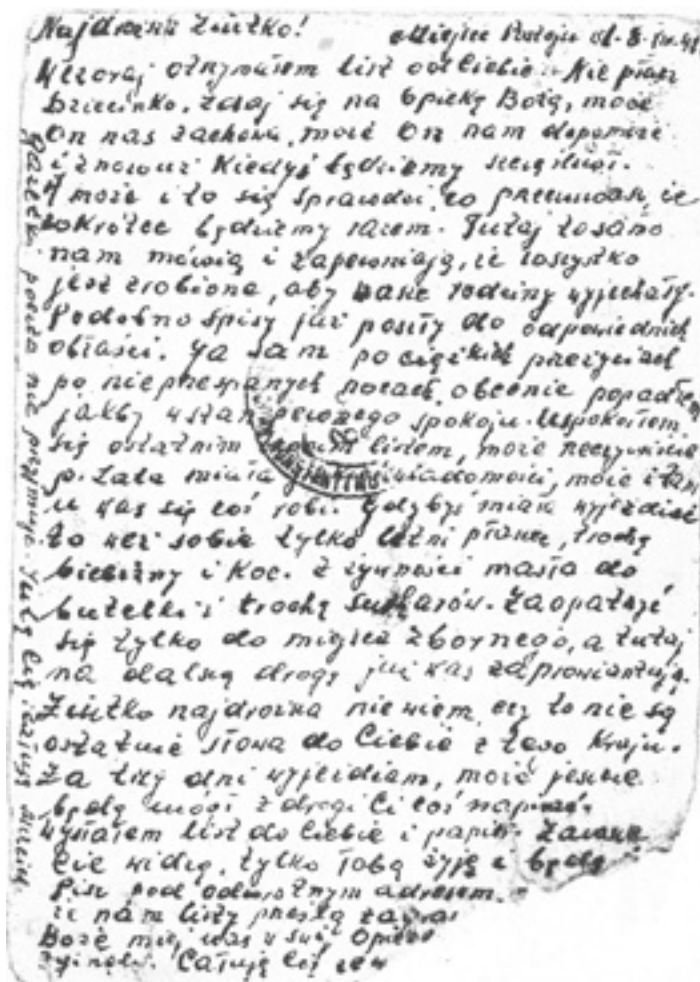 Najdroższa Ziutko! Miejsce Postoju
Wczoraj otrzymałem list od Ciebie. Nie płacz
Dziecinko, zdaj się na Opiekę Bożą, może
On nas zachowa, może On nam dopomoże
i znowuż kiedyś będziemy szczęśliwi.
A może i to się sprawdzi, co że
wkrótce będziemy razem. Tutaj
nam mówią i zapewniają, że wszystko
jest zrobione, aby nasze rodziny wyjechały.
Podobno spisy już poszły do odpowiednich
obłaści. Ja sam po ciężkich przeżyciach
po nieprzespanych nocach, obecnie popadłem
jakby w stan pewnego spokoju. Uspokoiłem
się ostatnim listem, może rzeczywiście
p. Lata miała wiadomości, może i tam
u was się coś robi. Gdybyś miała wyjeżdżać
to weź sobie tylko letni płaszcz, trochę
bielizny i koc. Z żywności masła do
butelki i trochę sucharów. Zaopatrzyć
się tylko do miejsca zbornego, a tutaj
na dalszą drogę już was zaprowiantują.
Ziutko najdroższa nie wiem czy to nie są
ostatnie słowa do Ciebie z tego Kraju.
Za trzy dni wyjeżdżam, może jeszcze
będę mógł z drogi Ci coś napisać.
Wysłałem list do Ciebie i papier. Zawsze
Cię widzę, tylko Tobą żyję i będę
Pisz pod odwrotnym adresem.
że nam listy prześlą
Boże miej was w swej Opiece
Całuję Cię
poczta nie przyjmuje. Jeszcze Cię całuję